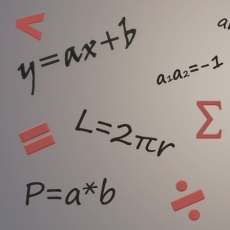 <
y=ax+b
a₁a₂=-1
L=2πr
Σ
=
P=a*b
÷